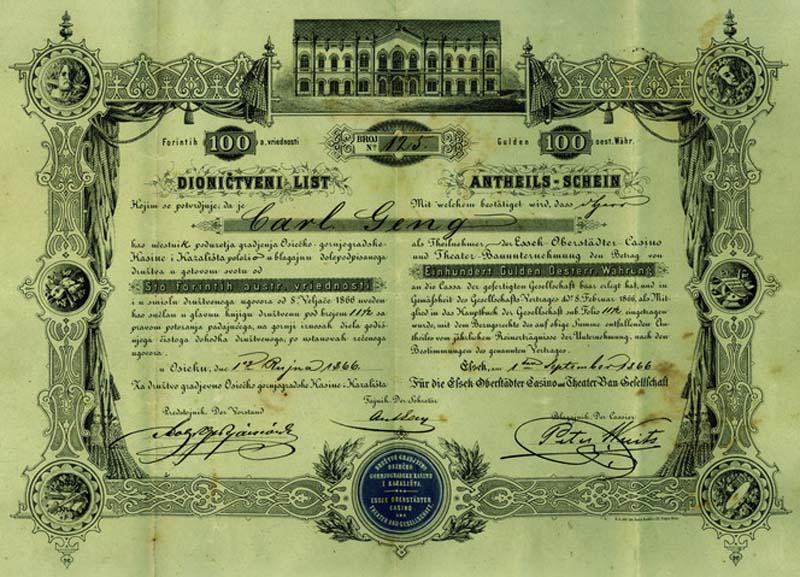 Forintih 100 a. vriednosti
BROJ No 125.
Gulden 100 oest. Währ.
DIONIČTVENI LIST
Kojim se potvrdjuje, da je
Carl Geng
kao učestnik poduzetja gradjenja Osiečko-gornjogradske
Kasine i Kazališta položio u blagajnu dolepodpisanoga
družtva u gotovom svotu od
Sto forintih austr. vriednosti
i u smislu družtvenoga ugovora od 8. Veljače 1866 uveden
kao sučlan u glavnu knjigu družtvenu pod brojem
pravom potezanja padajućega, na gornji iznosak diela godiš-
njega čistoga dohodka družtvenoga, po ustanovah rečenoga
ugovora.
u Osieku, dne 1ga Rujna 1866.
Za družtvo gradjevno Osiečko gornjogradske Kasine i Kazališta
ANTHEILS-SCHEIN
Mit welchem bestätiget wird, dass Herr
als Theilnehmer der Essek-Oberstädter-Casino
und Theater-Bauunternehmung den Betrag von
Einhundert Gulden Oesterr. Währung
an die Cassa der gefertigten Gesellschaft baar erlegt hat, und in
Gemässheit des Gesellschafts-Vertrages dto 8. Februar 1866, als Mit-
glied in das Hauptbuch der Gesellschaft sub Folio eingetragen
wurde, mit dem Bezugsrechte des auf obige Summe entfallenden An-
theiles vom jährlichen Reinerträgnisse der Unternehmung, nach den
Bestimmungen des genannten Vertrages.
Essek, am 1ten September 1866
Für die Essek-Oberstädter Casino und Theater-Bau-Gesellschaft
Predstojnik. Der Vorstand
Tajnik. Der Sekretär
Blagajnik. Der Cassier
Peter
DRUŽTVO GRADJEVNO
OSIEČKO
GORNJOGRADSKE KASINE
I KAZALIŠTA.
ESSEK OBERSTÄDTER
CASINO
UND
THEATER BAU-GESELLSCHAFT.